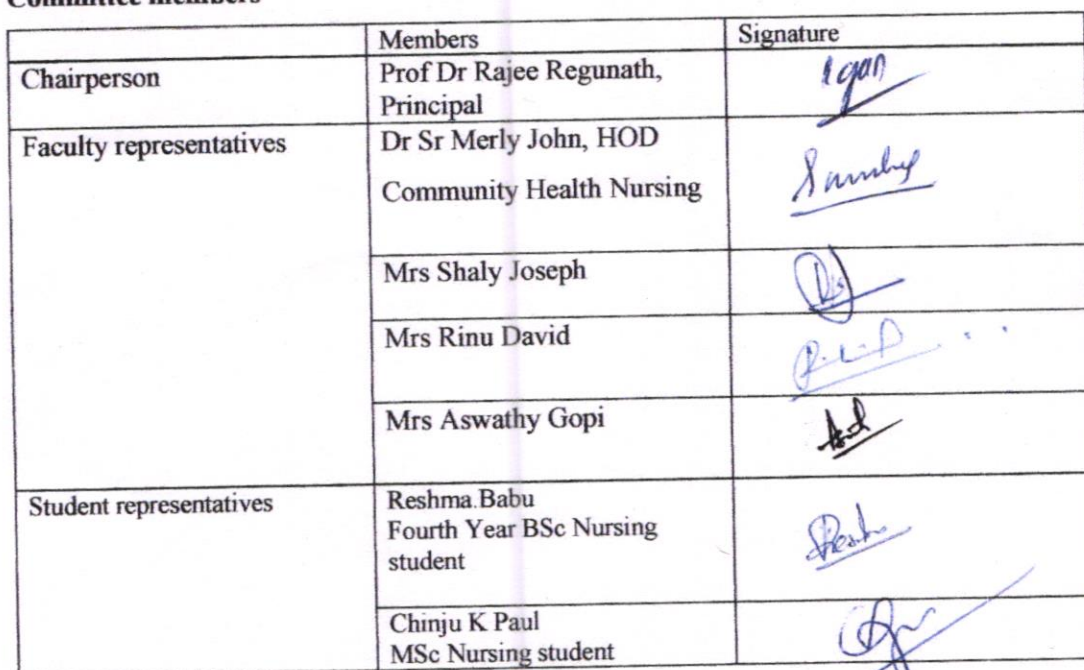 Committee members
Members Signature
Chairperson Prof Dr Rajee Regunath,
Principal
Faculty representatives Dr Sr Merly John, HOD
Community Health Nursing
Mrs Shaly Joseph
Mrs Rinu David
Mrs Aswathy Gopi
Student representatives Reshma.Babu
Fourth Year BSc Nursing
student
Chinju K Paul
MSc Nursing student